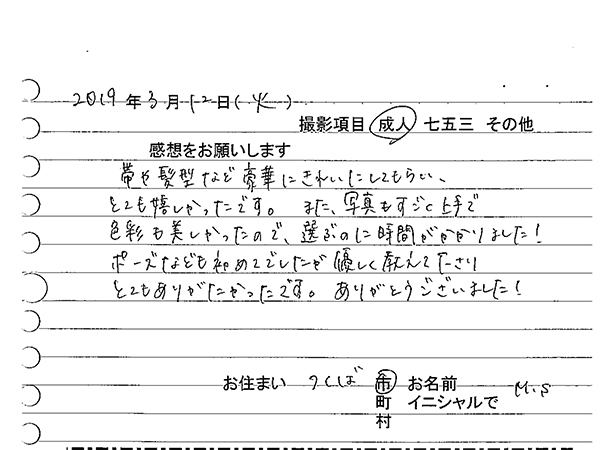 2019年3月12日(火)
撮影項目 成人 七五三 その他
感想をお願いします
帯や髪型など豪華にきれいにしてもらい、
とても嬉しかったです。 また、写真もすごく上手で
色彩も美しかったので、選ぶのに時間がかかりました!
ポーズなども初めてでしたが優しく教えて下さり
とてもありがたかったです。 ありがとうございました!
お住まい つくば 市 お名前 M.S
町 イニシャルで
村